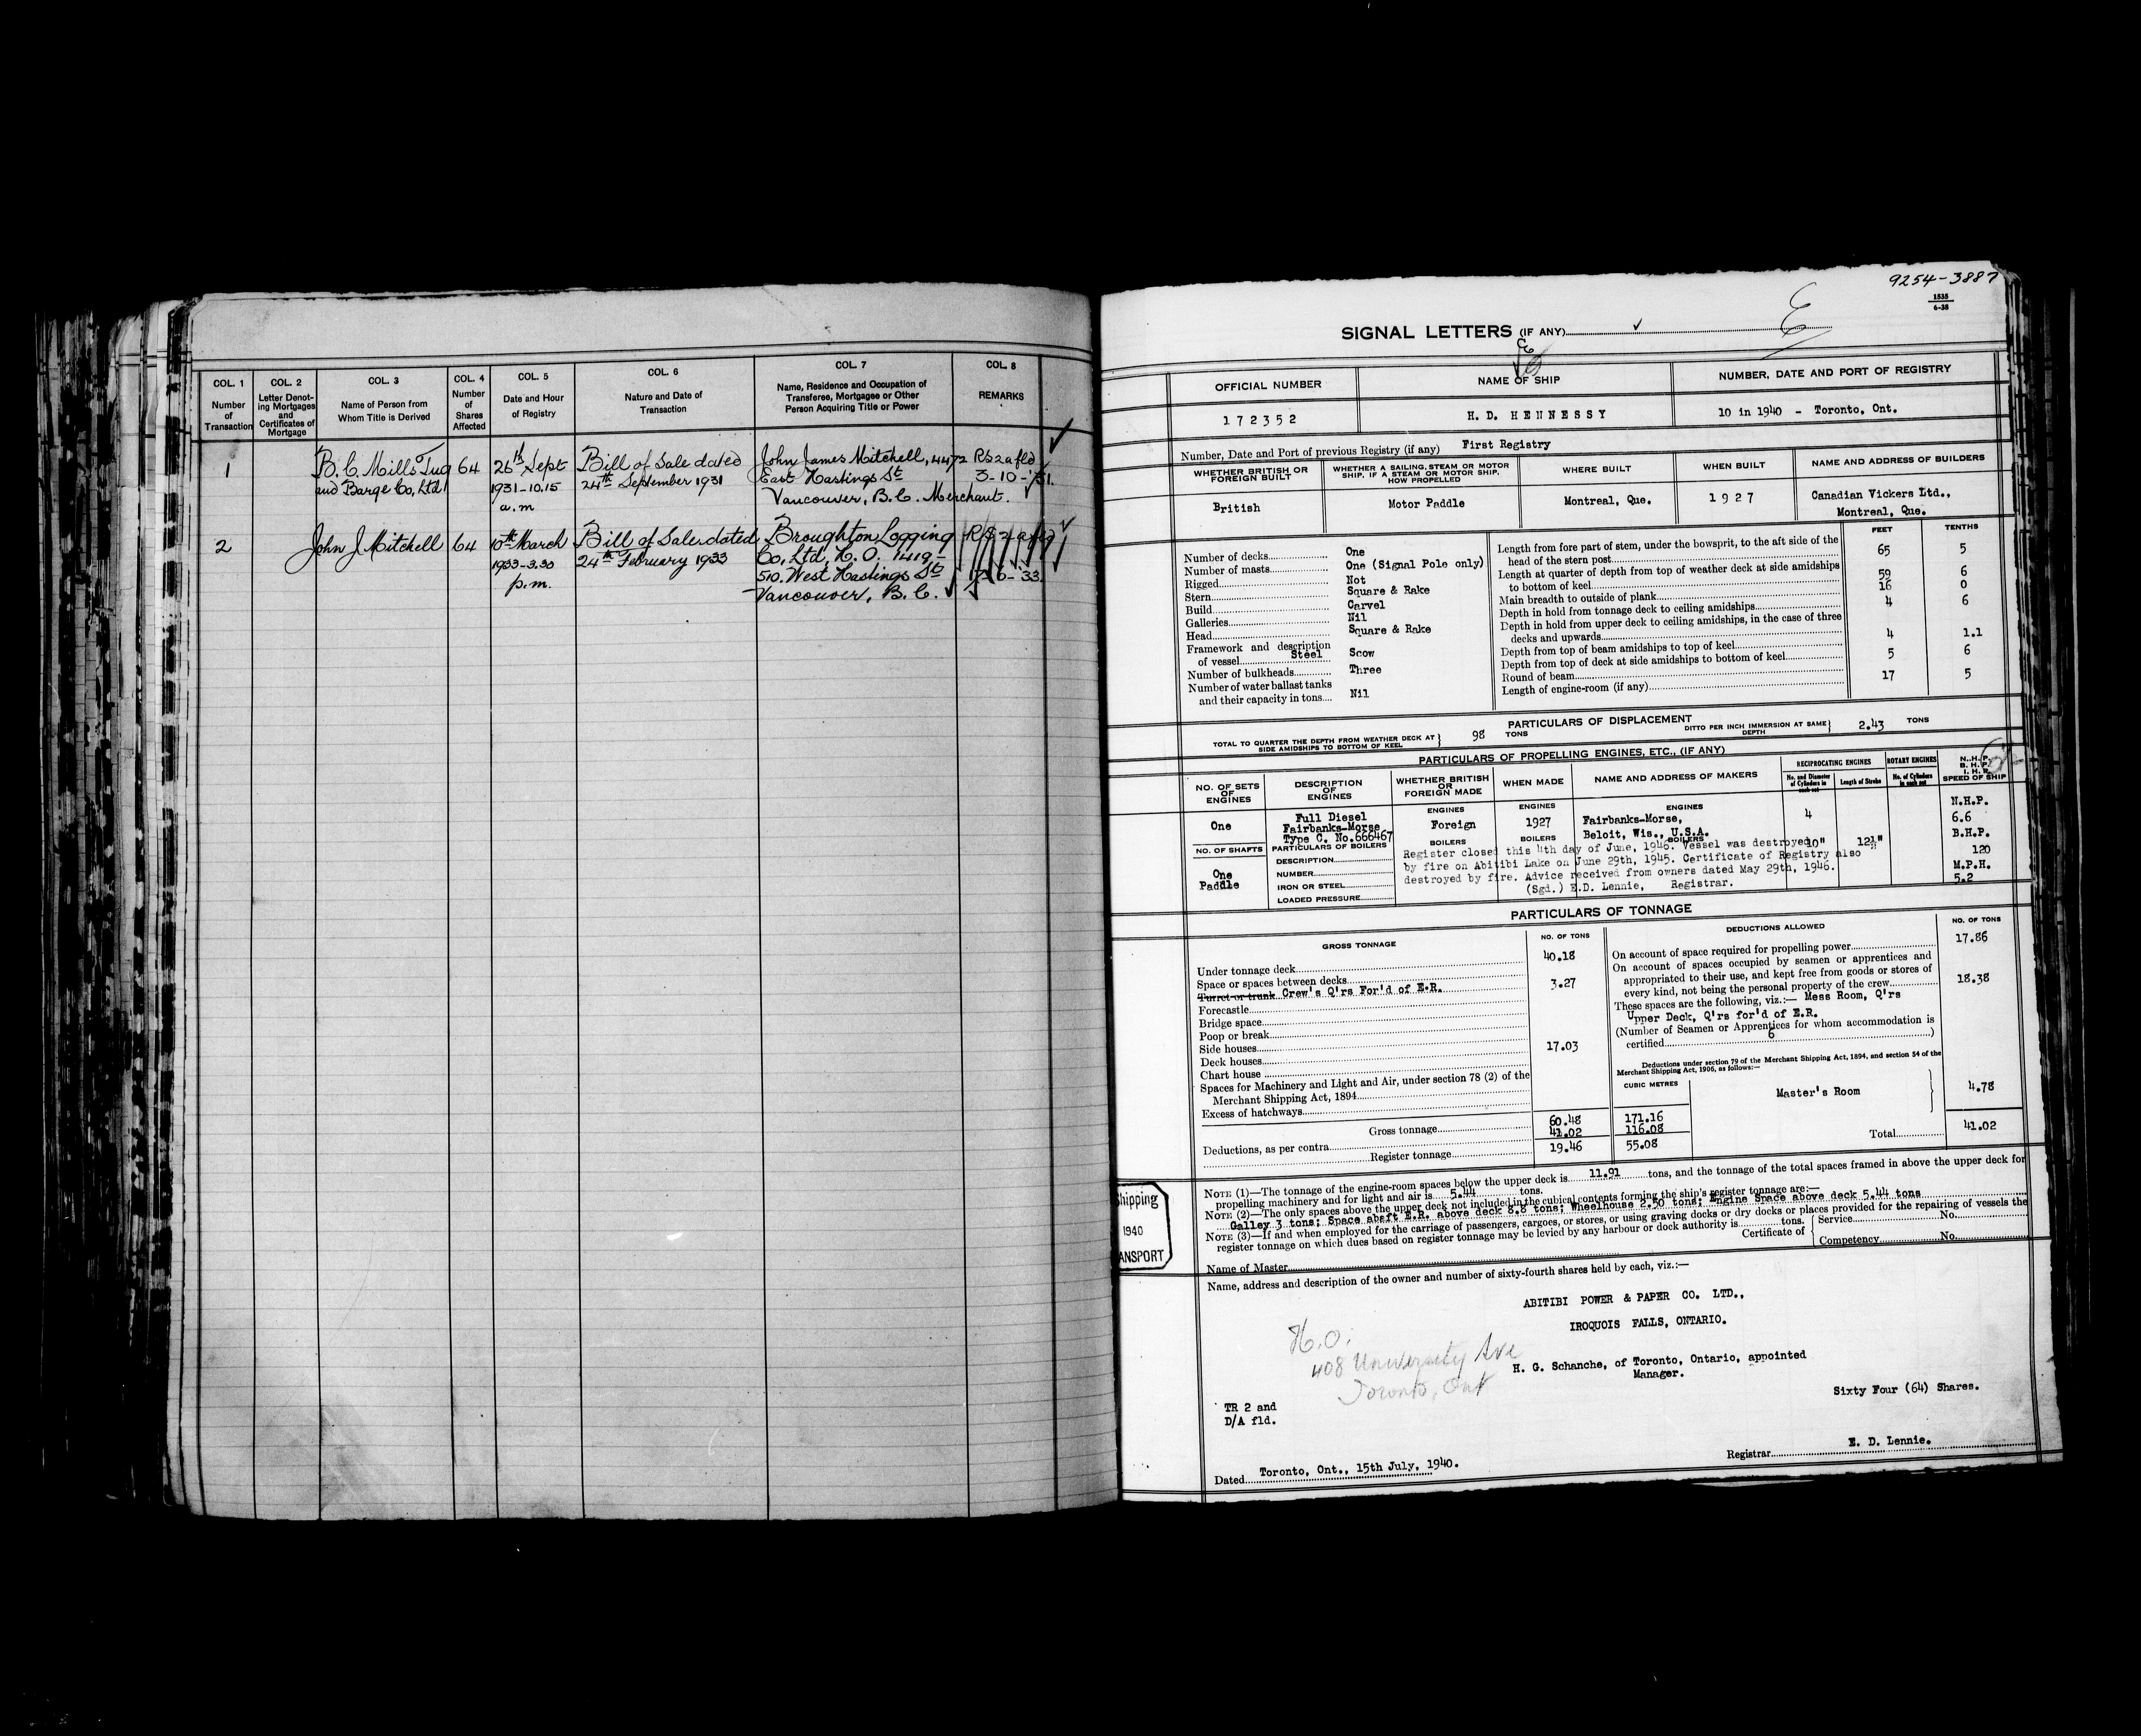 COL. 1
Number
of
Transaction
COL. 2
Letter Denot-
ing Mortgages
and
Certificates of
Mortgage
COL. 3
Name of Person from
Whom Title is Derived
COL. 4
Number
of
Shares
Affected
COL. 5
Date and Hour
of Registry
COL. 6
Nature and Date of
Transaction
COL. 7
Name, Residence and Occupation of
Transferee, Mortgagee or Other
Person Acquiring Title or Power
COL. 8
REMARKS
1
B. C. Mills Tug
and Barge Co, Ltd
64
26th Sept
1931-10.15
a.m
Bill of Sale dated
24th September 1931
John James Mitchell, 4472
East Hastings St
Vancouver, B.C. Merchant.
RS2a fld
3-10-31.
2
John J Mitchell
64
10th March
1933-3.30
p.m.
Bill of Sale dated
24th February 1933
Broughton Logging
Co, Ltd, H.O. 1419-
510. West Hastings St
Vancouver, B.C.
RS 2a fld
6-33
9254-3887
1535
6-38
SIGNAL LETTERS (IF ANY)
OFFICIAL NUMBER
NAME OF SHIP
NUMBER, DATE AND PORT OF REGISTRY
172352
H. D. HENNESSY
10 in 1940 - Toronto, Ont.
Number, Date and Port of previous Registry (if any) First Registry
WHETHER BRITISH OR
FOREIGN BUILT
WHETHER A SAILING, STEAM OR MOTOR
SHIP, IF A STEAM OR MOTOR SHIP,
HOW PROPELLED
WHERE BUILT
WHEN BUILT
NAME AND ADDRESS OF BUILDERS
British
Motor Paddle
Montreal, Que.
1927
Canadian Vickers Ltd.,
Montreal, Que.
Number of decks One
Number of masts One (Signal Pole only)
Rigged Not
Stern Square & Rake
Build Carvel
Galleries Nil
Head Square & Rake
Framework and description
of vessel Steel Scow
Number of bulkheads Three
Number of water ballast tanks
and their capacity in tons Nil
FEET
TENTHS
Length from fore part of stem, under the bowsprit, to the aft side of the
head of the stern post 65 5
Length at quarter of depth from top of weather deck at side amidships
to bottom of keel 59 6
Main breadth to outside of plank 16 0
Depth in hold from tonnage deck to ceiling amidships 4 6
Depth in hold from upper deck to ceiling amidships, in the case of three
decks and upwards
Depth from top of beam amidships to top of keel 4 1.1
Depth from top of deck at side amidships to bottom of keel 5 6
Round of beam
Length of engine-room (if any) 17 5
PARTICULARS OF DISPLACEMENT
TOTAL TO QUARTER THE DEPTH FROM WEATHER DECK AT
SIDE AMIDSHIPS TO BOTTOM OF KEEL
98 TONS
DITTO PER INCH IMMERSION AT SAME
DEPTH
2.43 TONS
PARTICULARS OF PROPELLING ENGINES, ETC., (IF ANY)
NO. OF SETS
OF
ENGINES
DESCRIPTION
OF
ENGINES
WHETHER BRITISH
OR
FOREIGN MADE
WHEN MADE
NAME AND ADDRESS OF MAKERS
RECIPROCATING ENGINES
No. and Diameter
of Cylinders in
each set
Length of Stroke
ROTARY ENGINES
No. of Cylinders
in each set
N.H.P.
B.H.P.
I.H.P.
SPEED OF SHIP
One
Full Diesel
Fairbanks-Morse
Type C. No.666467
ENGINES
Foreign
ENGINES
1927
ENGINES
Fairbanks-Morse,
Beloit, Wis., U.S.A.
4
10"
12½"
N.H.P.
6.6
B.H.P.
120
M.P.H.
5.2
NO. OF SHAFTS
One
Paddle
PARTICULARS OF BOILERS
DESCRIPTION
NUMBER
IRON OR STEEL
LOADED PRESSURE
BOILERS
BOILERS
BOILERS
Register closed this 4th day of June, 1946. Vessel was destroyed
by fire on Abitibi Lake on June 29th, 1945. Certificate of Registry also
destroyed by fire. Advice received from owners dated May 29th, 1946.
(Sgd.) E.D. Lennie, Registrar.
PARTICULARS OF TONNAGE
GROSS TONNAGE
NO. OF TONS
Under tonnage deck 40.18
Space or spaces between decks
Turret or trunk Crew's Q'rs For'd of E.R. 3.27
Forecastle
Bridge space
Poop or break
Side houses
Deck houses 17.03
Chart house
Spaces for Machinery and Light and Air, under section 78 (2) of the
Merchant Shipping Act, 1894
Excess of hatchways
Gross tonnage 60.48 171.16
Deductions, as per contra 41.02 116.08
Register tonnage 19.46 55.08
CUBIC METRES
DEDUCTIONS ALLOWED
NO. OF TONS
On account of space required for propelling power 17.86
On account of spaces occupied by seamen or apprentices and
appropriated to their use, and kept free from goods or stores of
every kind, not being the personal property of the crew 18.38
These spaces are the following, viz.:— Mess Room, Q'rs
Upper Deck, Q'rs for'd of E.R.
(Number of Seamen or Apprentices for whom accommodation is
certified 6 )
Deductions under section 79 of the Merchant Shipping Act, 1894, and section 54 of the
Merchant Shipping Act, 1906, as follows:—
Master's Room 4.78
Total 41.02
NOTE (1)—The tonnage of the engine-room spaces below the upper deck is 11.91 tons, and the tonnage of the total spaces framed in above the upper deck for
propelling machinery and for light and air is 5.44 tons.
NOTE (2)—The only spaces above the upper deck not included in the cubical contents forming the ship's register tonnage are:—
Galley 3 tons; Space abaft E.R. above deck 8.8 tons; Wheelhouse 2.50 tons; Engine Space above deck 5.44 tons
NOTE (3)—If and when employed for the carriage of passengers, cargoes, or stores, or using graving docks or dry docks or places provided for the repairing of vessels the
register tonnage on which dues based on register tonnage may be levied by any harbour or dock authority is tons.
Certificate of Service No.
Competency No.
Name of Master
Shipping
1940
ANSPORT
Name, address and description of the owner and number of sixty-fourth shares held by each, viz.:—
ABITIBI POWER & PAPER CO. LTD.,
IROQUOIS FALLS, ONTARIO.
H.O.
408 University Ave
Toronto, Ont
H. G. Schanche, of Toronto, Ontario, appointed
Manager.
Sixty Four (64) Shares.
TR 2 and
D/A fld.
Dated Toronto, Ont., 15th July, 1940.
Registrar E. D. Lennie.